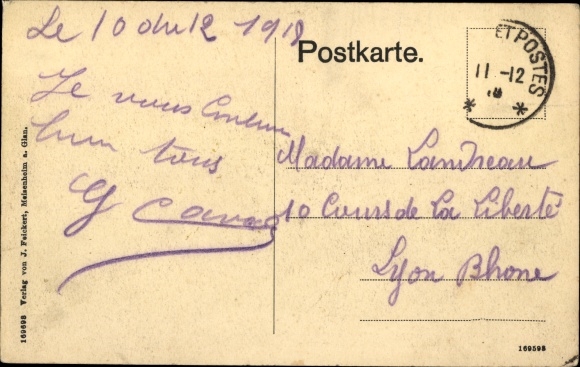 Le 10 du 12 1918
Postkarte.
ET POSTES
11 -12
18
* *
Je vous
tous
G
Madame Landreau
10 Cours de La Liberté
Lyon Rhone
169598 Verlag von J. Feickert, Meisenheim a. Glan.
169598